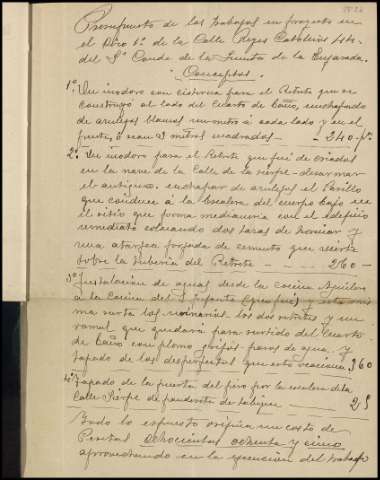 Presupuesto de los trabajos en proyecto en
el Piso 6º de la Calle Reyes Católicos
del Sr Conde de la Fuente de la
Conceptos.
1º Un inodoro con cisterna para el Retrete que se
construyó al lado del Cuarto de baño, enchapado
de azulejos blancos un metro á cada lado y en el
frente, ó sean metros cuadrados - 240 pts
2º Un inodoro para el Retrete que fué de criados
en la nave de la Calle de la Sierpe - desarmar
el antiguo. enchapar de azulejos el Pasillo
que conduce á la escalera del cuerpo bajo en
el sitio que forma medianería con el edificio
inmediato colocando dos
una atarjea forjada de cemento que
sobre la tubería del Retrete - - - 260 -
3º Instalación de aguas desde la cocina
á la Cocina del y
surta los los dos retretes y un
ramal que quedará para surtido del Cuarto
de baño con plomo pasos de agua. y
tapado de los desperfectos que esto ocasione 360
4º Tapado de la puerta del piso por la escalera de la
Calle Sierpe de pandereta de tabique - 25
Todo lo expuesto origina un costo de
Pesetas ochocientas ochenta y cinco
aprovechando en la ejecución del trabajo